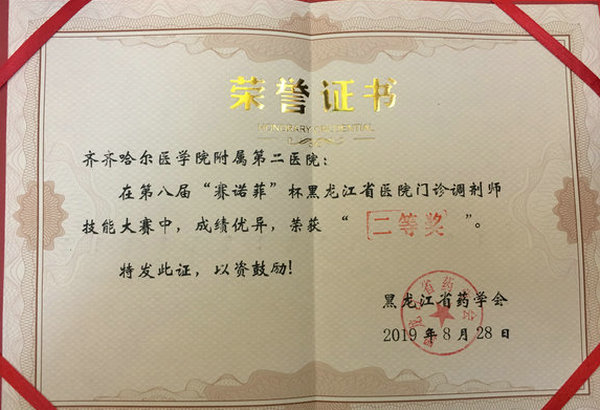 荣誉证书
HONORARY CREDENTIAL
齐齐哈尔医学院附属第二医院：
在第八届“赛诺菲”杯黑龙江省医院门诊调剂师
技能大赛中，成绩优异，荣获“二等奖”。
特发此证，以资鼓励！
黑龙江省药学会
2019年8月28日